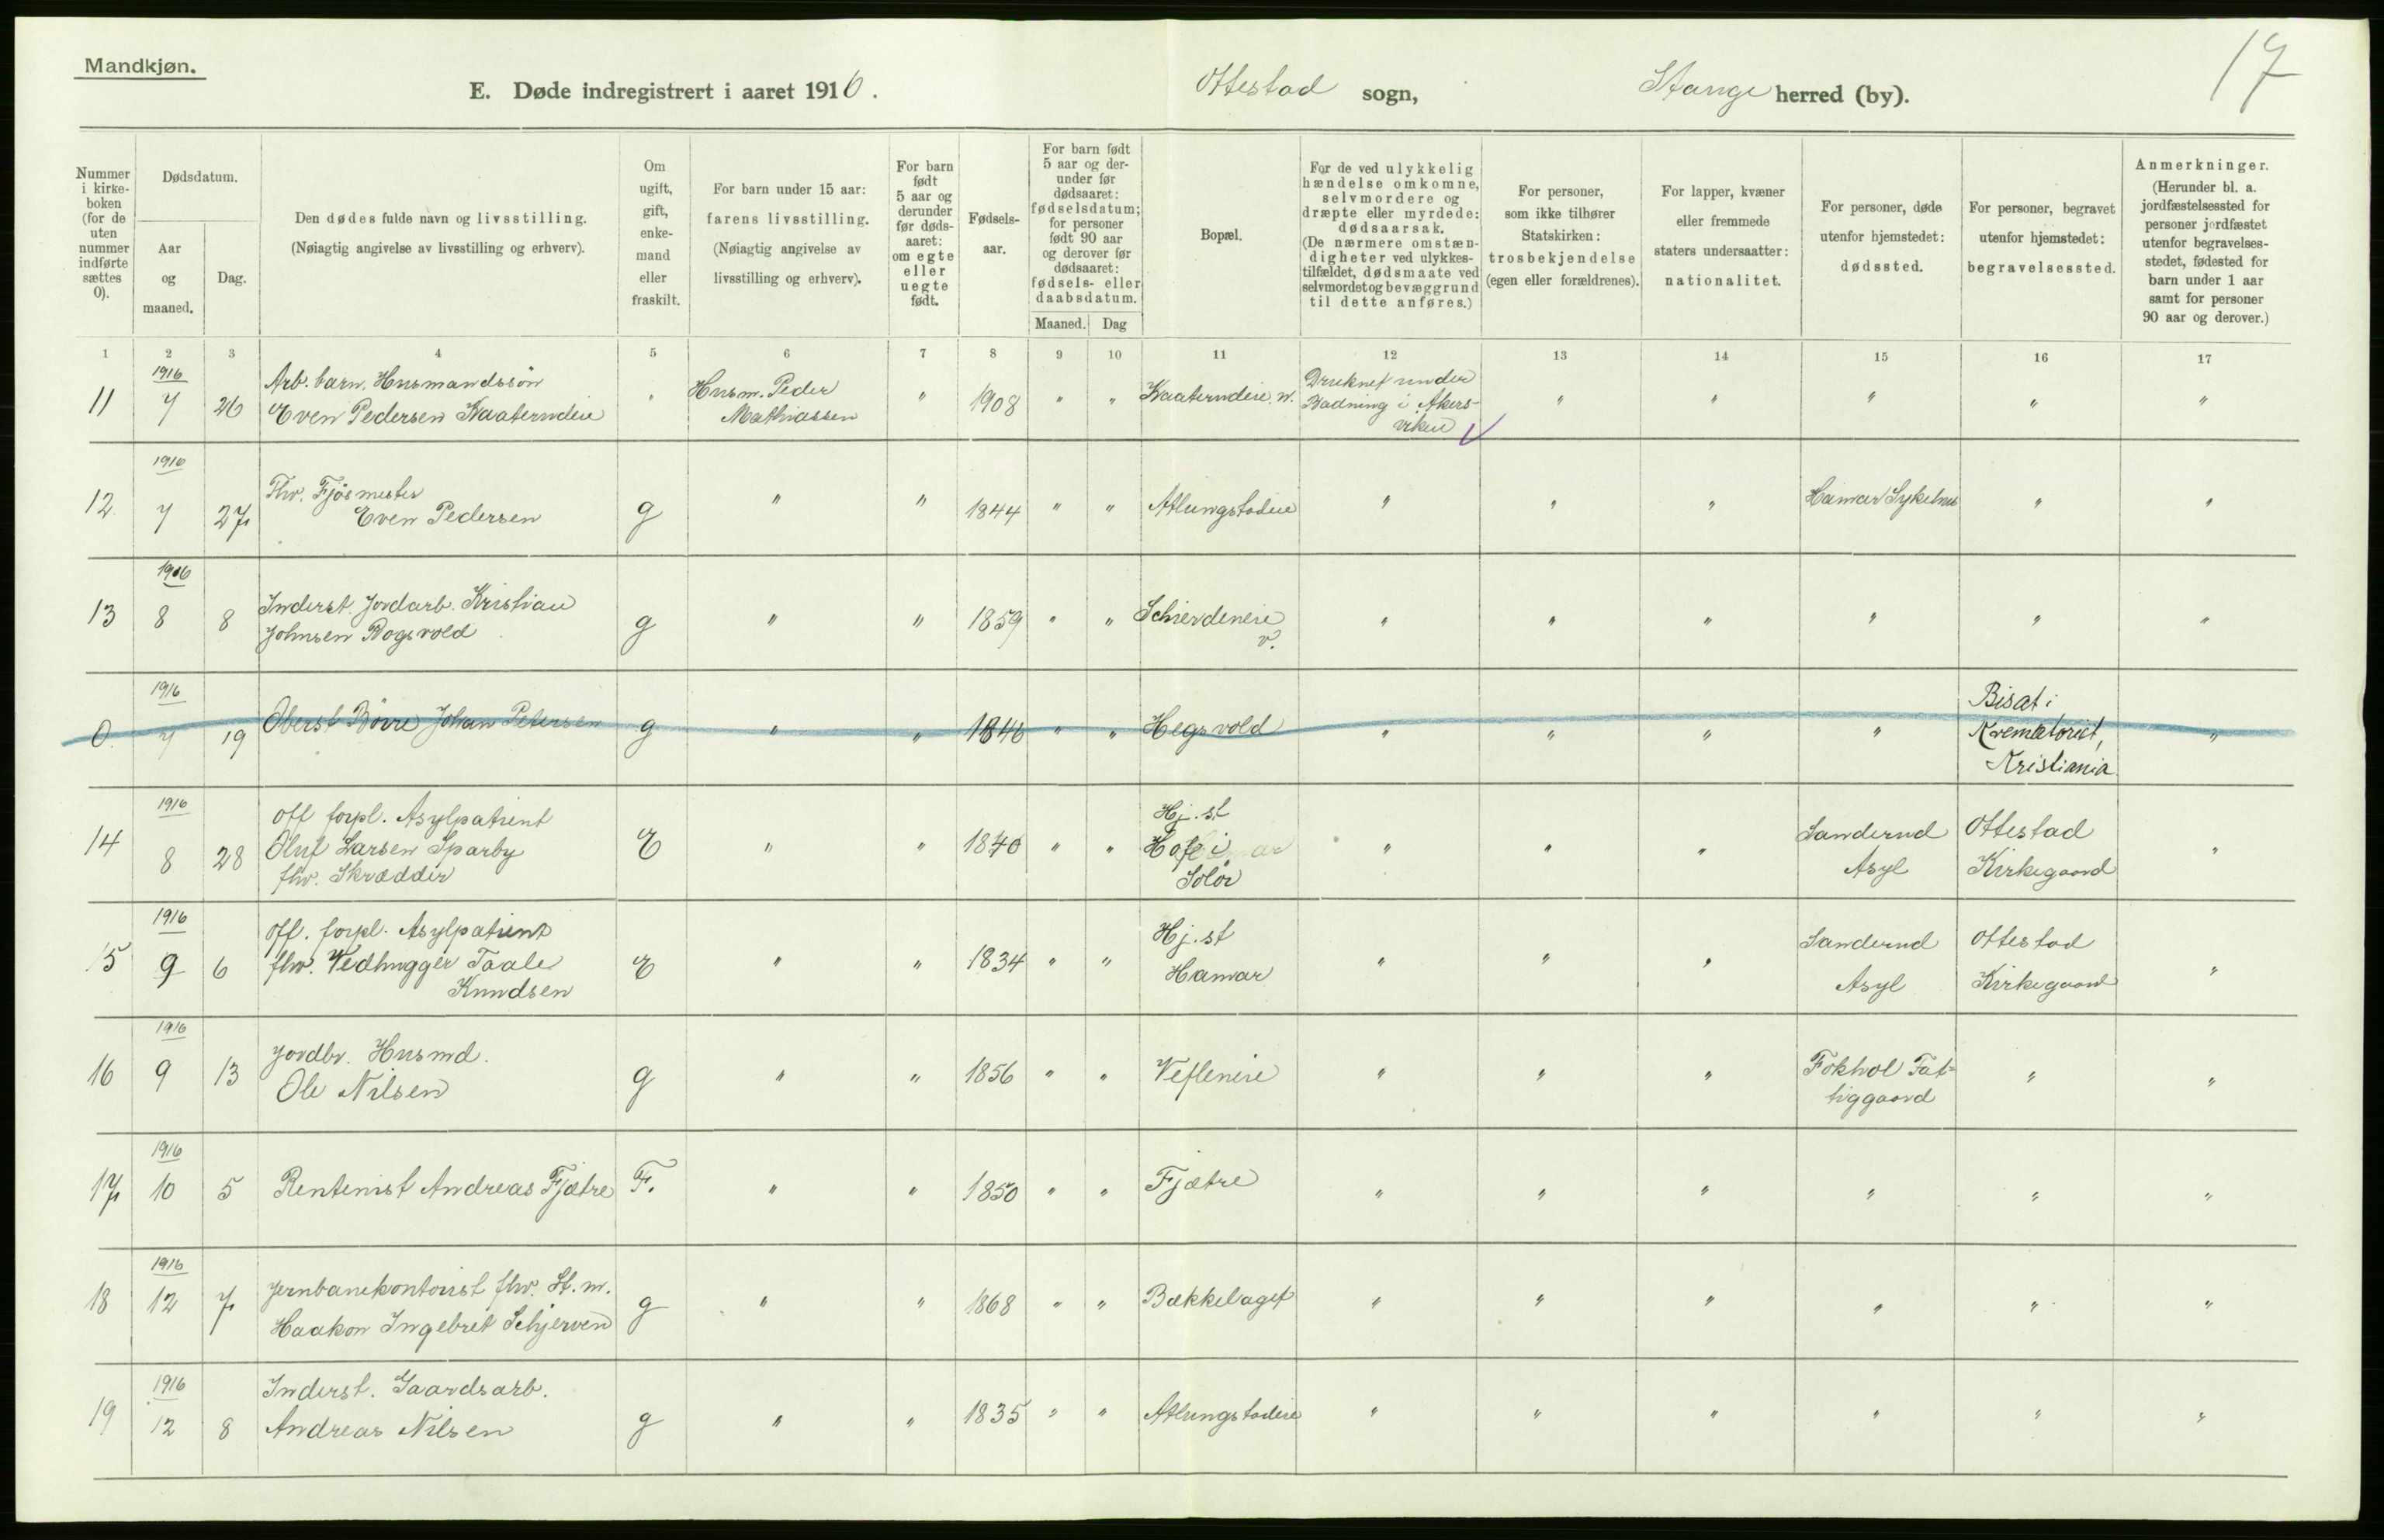 Mandkjøn.
17
E. Døde indregistrert i aaret 1916. Ottestad sogn, Stange herred (by).
Nummer i kirkeboken (for de uten nummer indførte sættes 0).
Dødsdatum.
Aar og maaned.
Dag.
Den dødes fulde navn og livsstilling.
(Nøiagtig angivelse av livsstilling og erhverv).
Om ugift, gift, enkemand eller fraskilt.
For barn under 15 aar: farens livsstilling.
(Nøiagtig angivelse av livsstilling og erhverv).
For barn født 5 aar og derunder før dødsaaret: om egte eller uegte født.
Fødselsaar.
For barn født 5 aar og derunder før dødsaaret: fødselsdatum; for personer født 90 aar og derover før dødsaaret: fødsels- eller daabsdatum.
Maaned. Dag
Bopæl.
For de ved ulykkelig hændelse omkomne, selvmordere og dræpte eller myrdede: dødsaarsak.
(De nærmere omstændigheter ved ulykkestilfældet, dødsmaate ved selvmordet og bevæggrund til dette anføres.)
For personer, som ikke tilhører Statskirken: trosbekjendelse (egen eller forældrenes).
For lapper, kvæner eller fremmede staters undersaatter: nationalitet.
For personer, døde utenfor hjemstedet: dødssted.
For personer, begravet utenfor hjemstedet: begravelsessted.
Anmerkninger.
(Herunder bl. a. jordfæstelsessted for personer jordfæstet utenfor begravelsesstedet, fødested for barn under 1 aar samt for personer 90 aar og derover.)
1 2 3 4 5 6 7 8 9 10 11 12 13 14 15 16 17
11 1916 7 26 Arb. barn. Husmandssøn
Even Pedersen Kaaterudeie " Husm. Peder
Mathiassen " 1908 " " Kaaterudeie. v. Druknet under
Badning i Akersviken " " " " "
12. 1916 7 27 Fhv. Fjøsmester
Even Pedersen g " " 1844 " " Atlungstadeie " " " Hamar Sykehus " "
13 1916 8 8 Inderst. Jordarb. Kristian
Johnsen Bogsvold g " " 1859 " " Schierdeneie
v. " " " " " "
0. 1916 7 19 Oberst Børre Johan Petersen g " " 1846 " " Hegsvold " " " " Bisat i
Krematoriet,
Kristiania "
14 1916 8 28 Off forpl. Asylpatient
Oluf Larsen Sparby
fhv. Skrædder E " " 1840 " " Hj. st
Hof i
Solør " " " Sanderud
Asyl Ottestad
Kirkegaard "
15 1916 9 6 Off. forpl. Asylpatient
fhv. Vedhugger Taale
Knudsen E " " 1834 " " Hj. st
Hamar " " " Sanderud
Asyl Ottestad
Kirkegaard "
16 1916 9 13 Jordbr. Husmd.
Ole Nilsen g " " 1856 " " Vefleneie " " " Fokhol Fattiggaard " "
17 1916 10 5 Rentenist Andreas Fjætre F. " " 1850 " " Fjætre " " " " " "
18 1916 12 7 Jernbanekontorist fhv. St. m.
Haakon Ingebret Schjerven g " " 1868 " " Bækkelaget " " " " " "
19 1916 12 8 Inderst. Gaardsarb.
Andreas Nilsen g " " 1835 " " Atlungstadeie " " " " " "